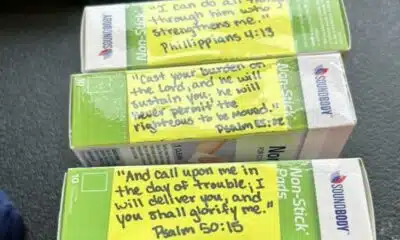 "I can do all th
through him who
strengthens me."
Philippians 4:13
SOUNDBODY
Non-Stick
"Cast your burden on
the Lord, and he will
sustain you; he will
never permit the
righteous to be moved."
Psalm
SOUNDBODY
Non-Stick
10
"And call upon me in
the day of trouble; I
will deliver you, and
you shall glorify me."
Psalm 50:15
SOUNDBODY
Non-Stick
Pads